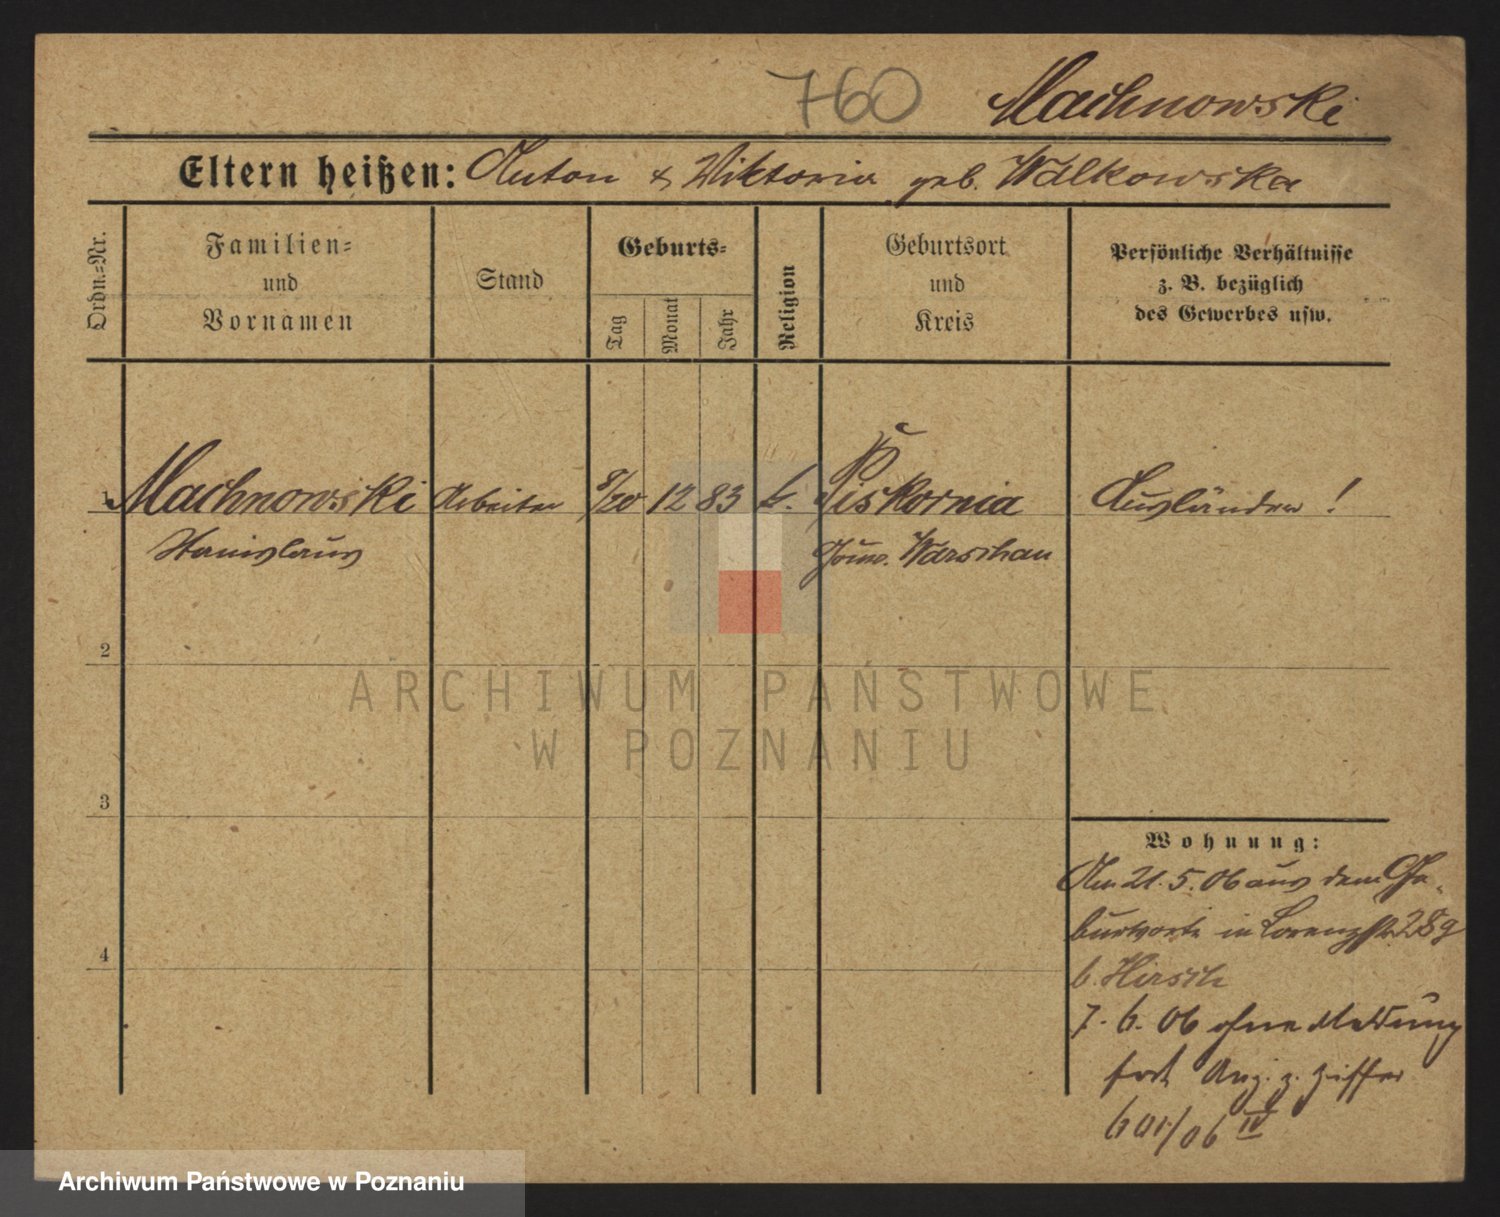 760 Machnowski
Eltern heißen: Anton & Viktoria geb. Walkowska
Ordn.=Nr.
Familien=
und
Vornamen
Stand
Geburts=
Tag
Monat
Jahr
Religion
Geburtsort
und
Kreis
Persönliche Verhältnisse
z. B. bezüglich
des Gewerbes usw.
1 Machnowski Arbeiter 8/20 12 83 k. Piskornia Ausländer!
Stanislaus Gouv. Warschau
2
3
4
Wohnung:
Am 21.5.06 aus dem Ge-
burtsorte in Lorenzstr 28g
b. Hirsch
7.6.06 ohne Meldung
fort Anz. z. Ziffer
601/06 IV
ARCHIWUM PAŃSTWOWE
W POZNANIU
Archiwum Państwowe w Poznaniu